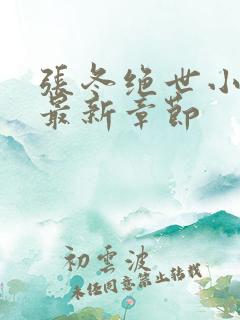 張冬绝世小
最新章節
初雲波
未经同意禁止转载